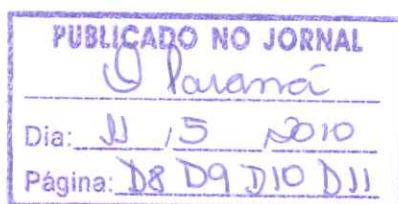 PUBLICADO NO JORNAL
O Paraná
Dia: 11 / 5 / 2010
Página: D8 D9 D10 D11